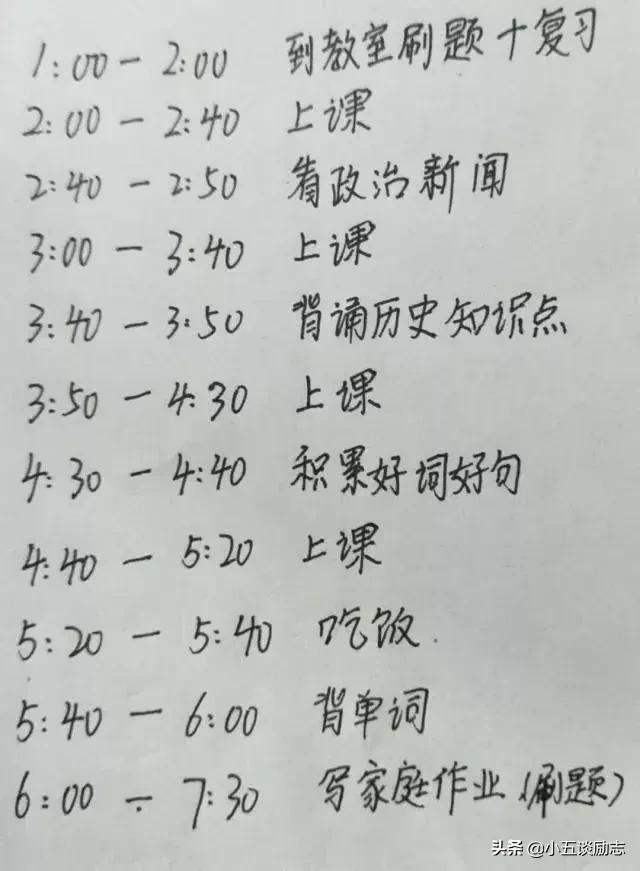 1:00 — 2:00 到教室刷题+复习
2:00 — 2:40 上课
2:40 — 2:50 看政治新闻
3:00 — 3:40 上课
3:40 — 3:50 背诵历史知识点
3:50 — 4:30 上课
4:30 — 4:40 积累好词好句
4:40 — 5:20 上课
5:20 — 5:40 吃饭.
5:40 — 6:00 背单词
6:00 — 7:30 写家庭作业(刷题)
头条 @小五谈励志